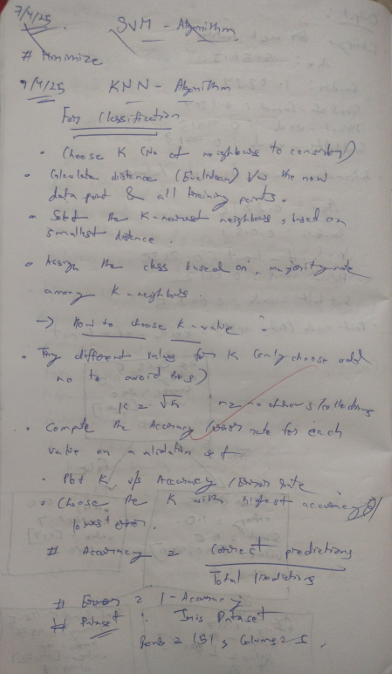 7/4/25 SVM - Algorithm
# Minimize
9/4/25 KNN - Algorithm
For Classification
• Choose K (no of neighbours to consider)
• Calculate distance (Euclidean) b/w the new
data point & all training points.
• Select the K-nearest neighbours, based on
smallest distance.
• Assign the class based on majority vote
among K-neighbours.
→ How to choose K-value :
• Try different values for K (only choose odd
no to avoid ties)
K = √n n = no of rows/
• Compute the Accuracy / error rate for each
value on a validation set
• Plot K v/s Accuracy / Error rate
• Choose the K with highest accuracy
lowest error.
# Accuracy = correct predictions
Total predictions
# Error = 1 - Accuracy
# Dataset : Iris Dataset
Rows = 151, Columns = 5.